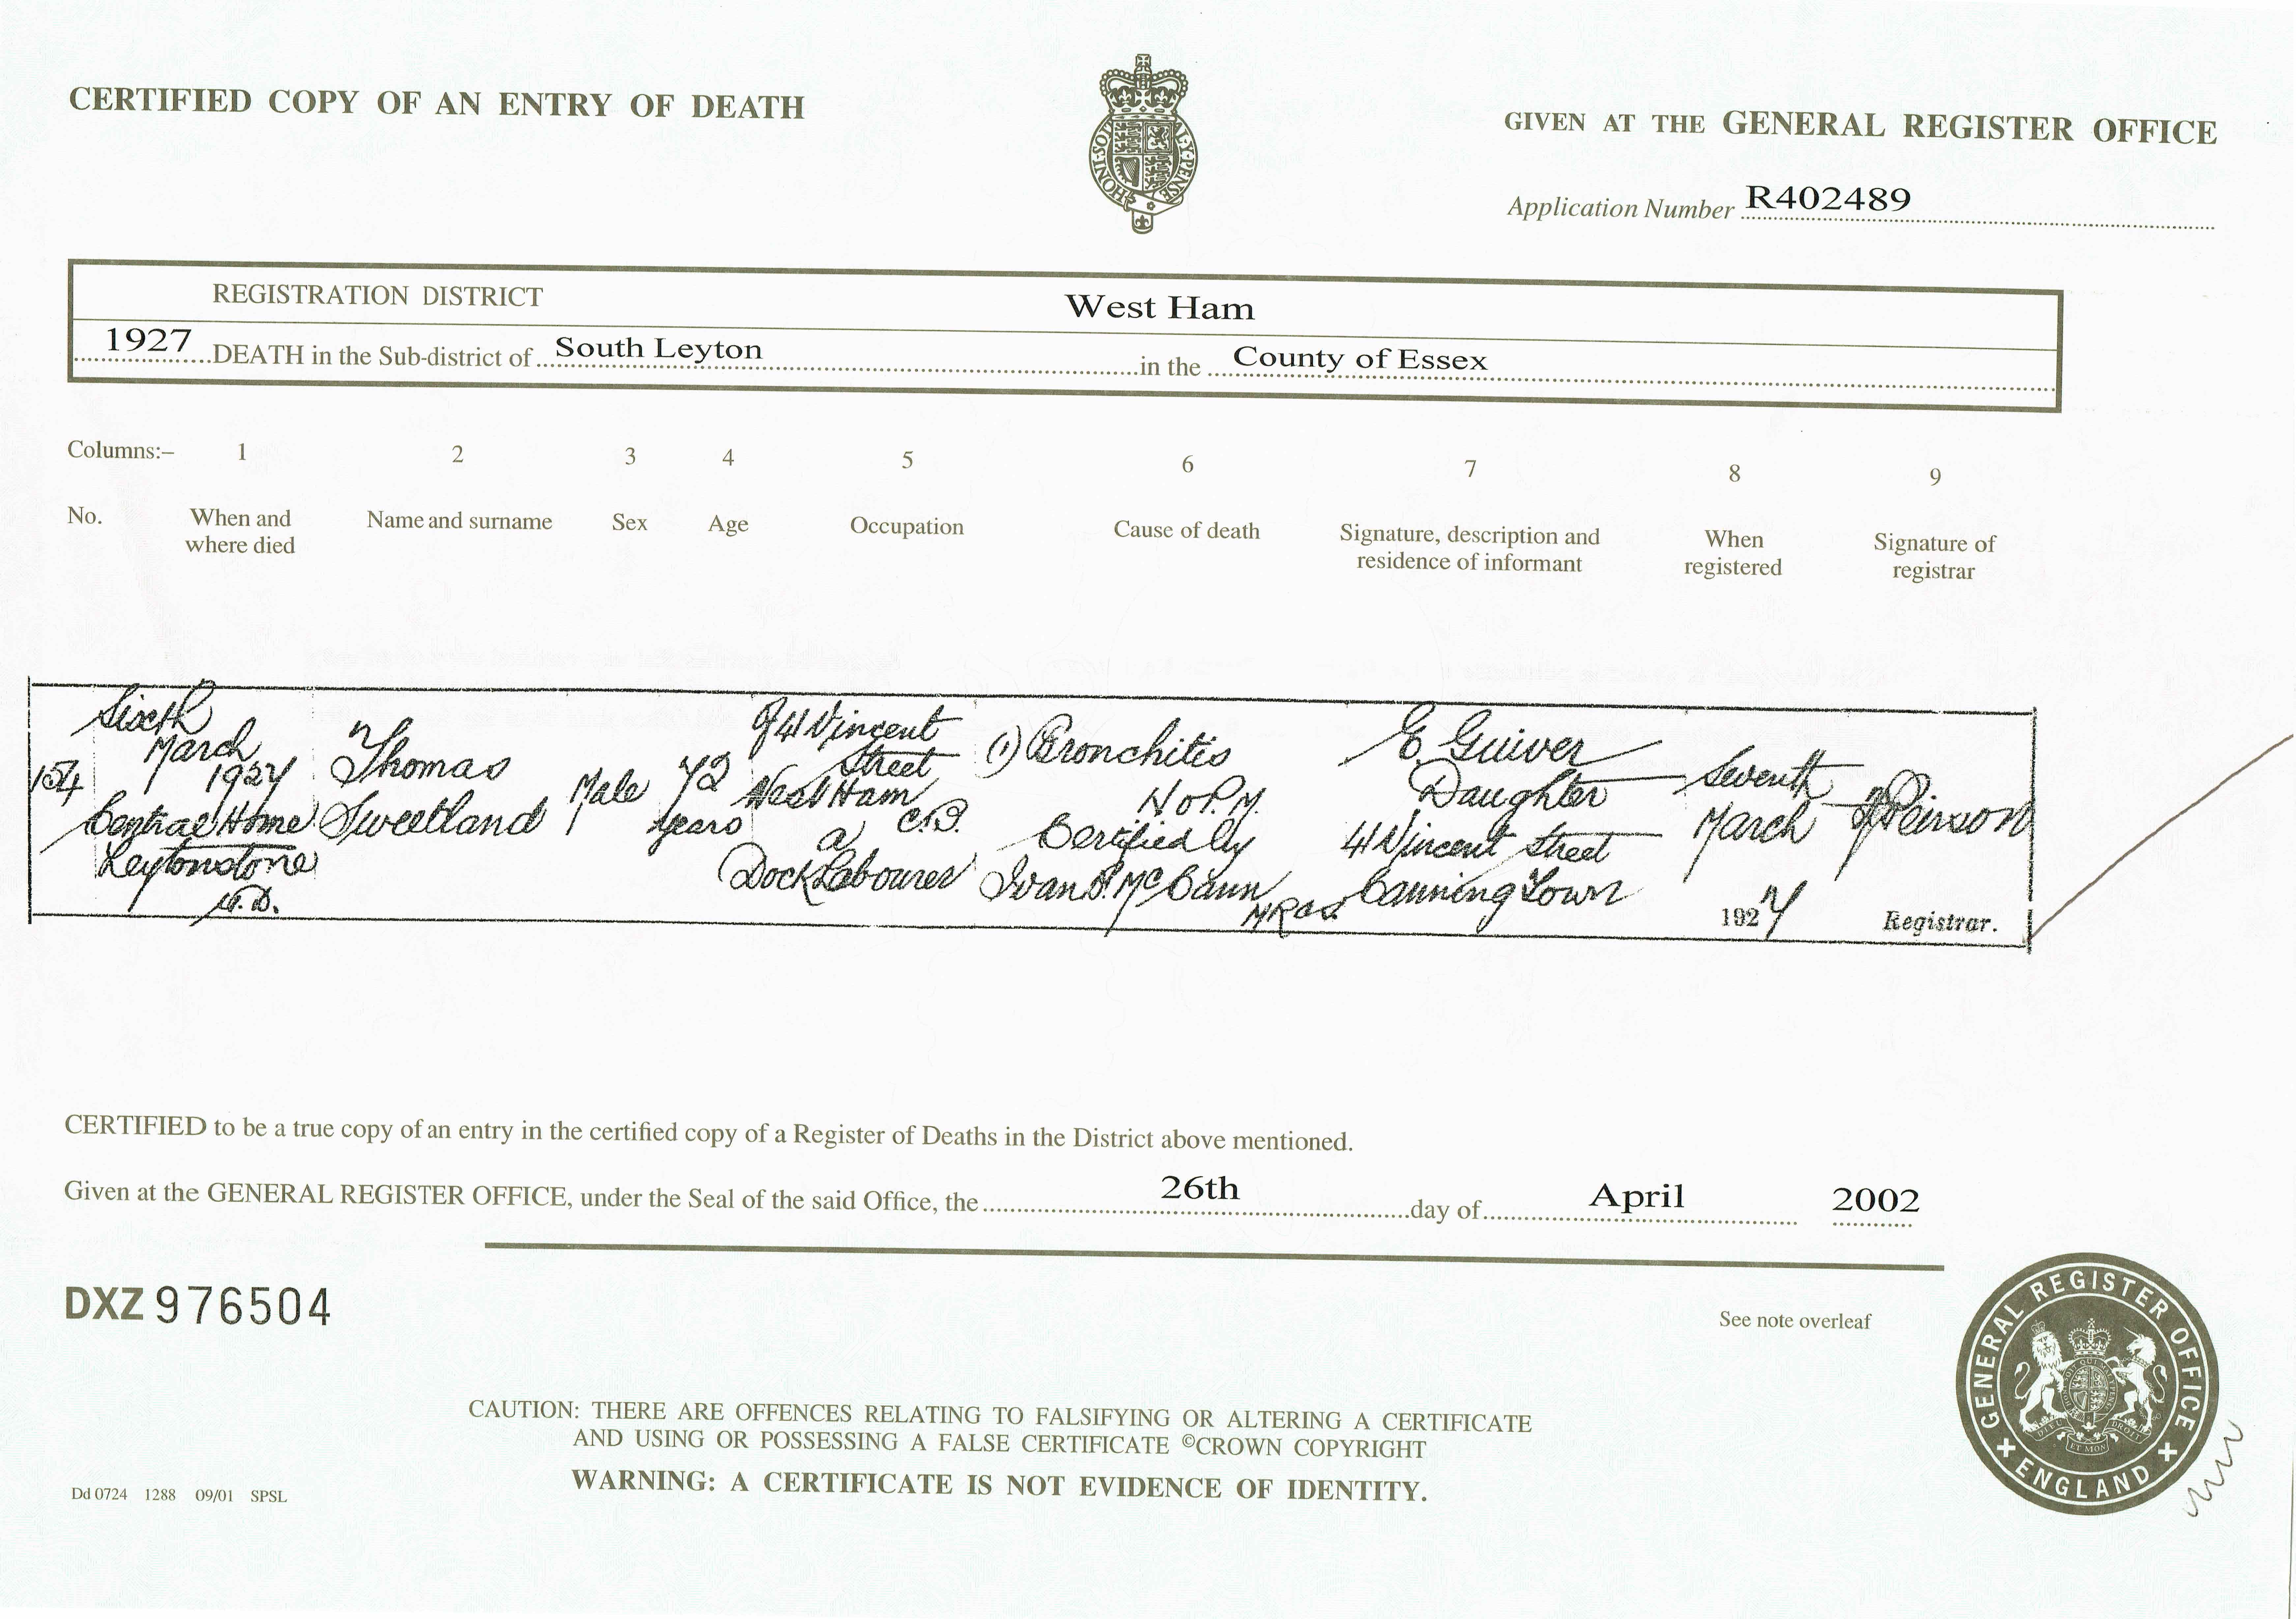 CERTIFIED COPY OF AN ENTRY OF DEATH
GIVEN AT THE GENERAL REGISTER OFFICE
Application Number R402489
REGISTRATION DISTRICT West Ham
1927 DEATH in the Sub-district of South Leyton in the County of Essex
Columns:– 1 2 3 4 5 6 7 8 9
No.
When and
where died
Name and surname
Sex
Age
Occupation
Cause of death
Signature, description and
residence of informant
When
registered
Signature of
registrar
154
Sixth
March
1927
Central Home
Leytonstone
U.D.
Thomas
Sweetland
Male
72
years
Of 41 Vincent
Street
West Ham
C.B.
a
Dock Labourer
(1) Bronchitis
No P.M.
Certified by
Ivan D. McCann
MRCS.
E. Guiver
Daughter
41 Vincent Street
Canning Town
Seventh
March
1927
Peirson
Registrar.
CERTIFIED to be a true copy of an entry in the certified copy of a Register of Deaths in the District above mentioned.
Given at the GENERAL REGISTER OFFICE, under the Seal of the said Office, the 26th day of April 2002
DXZ 976504
See note overleaf
GENERAL REGISTER OFFICE
ENGLAND
CAUTION: THERE ARE OFFENCES RELATING TO FALSIFYING OR ALTERING A CERTIFICATE
AND USING OR POSSESSING A FALSE CERTIFICATE ©CROWN COPYRIGHT
WARNING: A CERTIFICATE IS NOT EVIDENCE OF IDENTITY.
Dd 0724 1288 09/01 SPSL